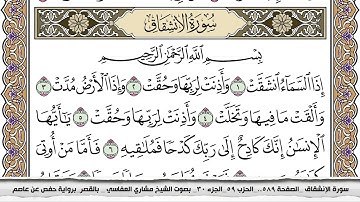 سُورَةُ الِانشِقَاقِ
بِسْمِ اللَّهِ الرَّحْمَٰنِ الرَّحِيمِ
إِذَا السَّمَاءُ انشَقَّتْ ١ وَأَذِنَتْ لِرَبِّهَا وَحُقَّتْ ٢ وَإِذَا الْأَرْضُ مُدَّتْ ٣
وَأَلْقَتْ مَا فِيهَا وَتَخَلَّتْ ٤ وَأَذِنَتْ لِرَبِّهَا وَحُقَّتْ ٥ يَا أَيُّهَا
الْإِنسَانُ إِنَّكَ كَادِحٌ إِلَىٰ رَبِّكَ كَدْحًا فَمُلَاقِيهِ ٦ فَأَمَّا مَنْ أُوتِيَ
سورة الإنشقاق .. الصفحة ٥٨٩ .. الحزب ٥٩ .. الجزء ٣٠ .. بصوت الشيخ مشاري العفاسي .. بالقصر برواية حفص عن عاصم